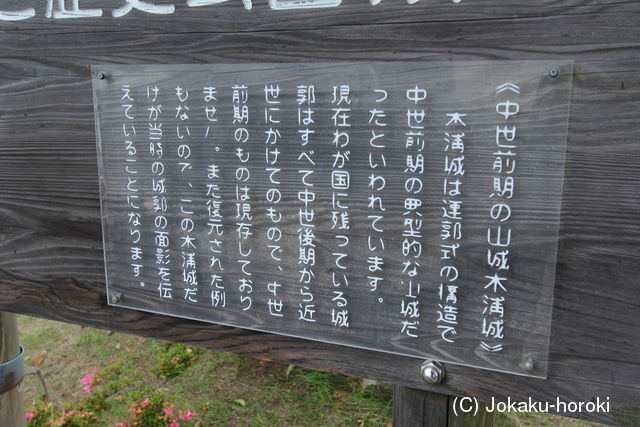 《中世前期の山城木浦城》
木浦城は連郭式の構造で
中世前期の典型的な山城だ
ったといわれています。
現在わが国に残っている城
郭はすべて中世後期から近
世にかけてのもので、中世
前期のものは現存しており
ません。また復元された例
もないので、この木浦城だ
けが当時の城郭の面影を伝
えていることになります。
(C) Jokaku-horoki